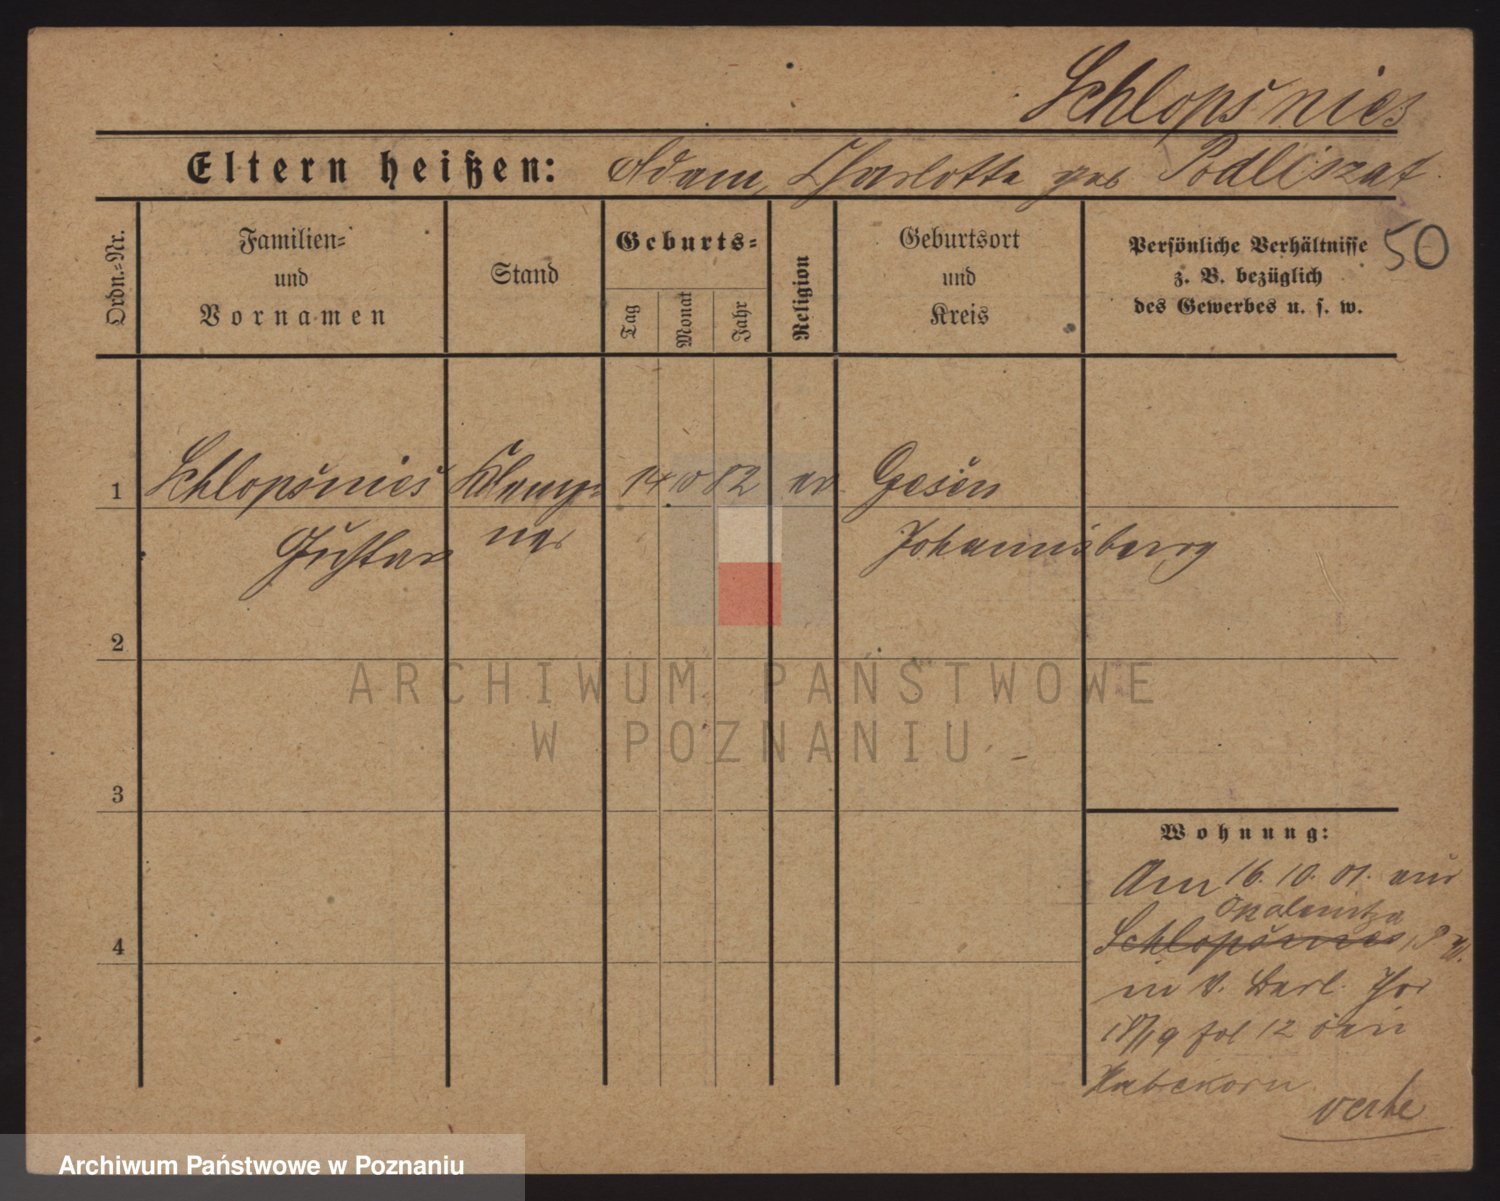 Schlopsnies
Eltern heißen: Adam, Charlotte geb Podliszat
50
Ordn.=Nr.
Familien=
und
Vornamen
Stand
Geburts=
Tag
Monat
Jahr
Religion
Geburtsort
und
Kreis
Persönliche Verhältnisse
z. B. bezüglich
des Gewerbes u. s. w.
1 Schlopsnies Klemp= 14 10 82 ev
Gustav ner Johannisburg
2
3
4
Wohnung:
Am 16. 10. 01. aus
Opalenitza
Schlopsnies
in v. Berl. Thor
fol 12 bei
Haberkorn
ARCHIWUM PAŃSTWOWE
W POZNANIU
Archiwum Państwowe w Poznaniu